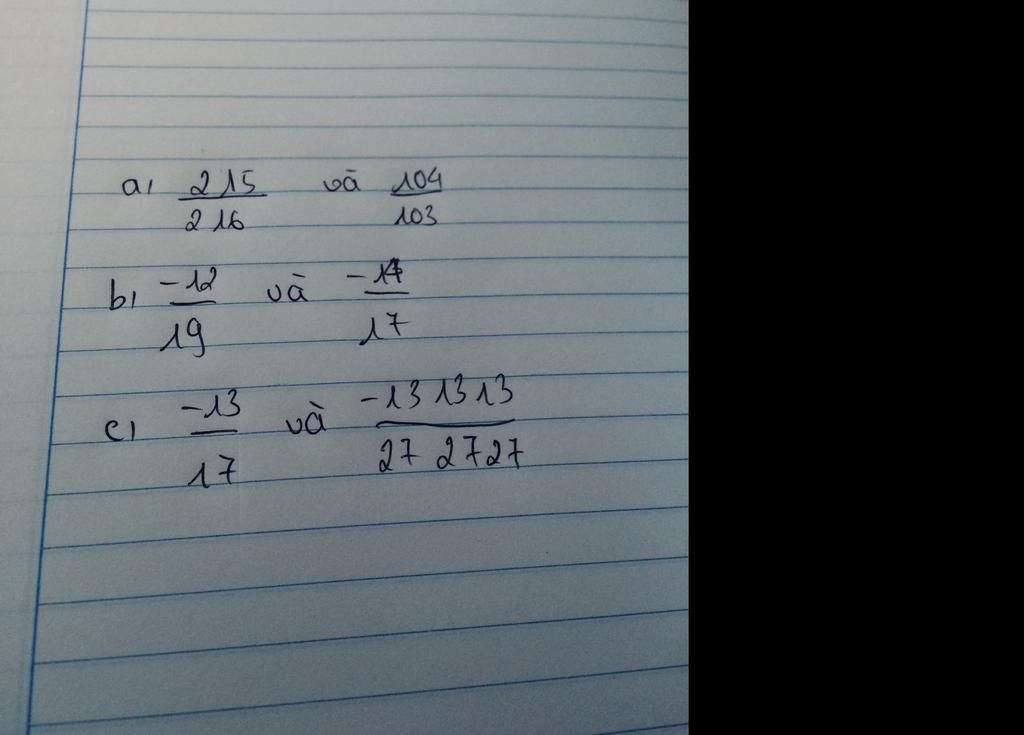 a, 215/216 và 104/103
b, -12/19 và -14/17
c, -13/17 và -13 13 13/27 27 27